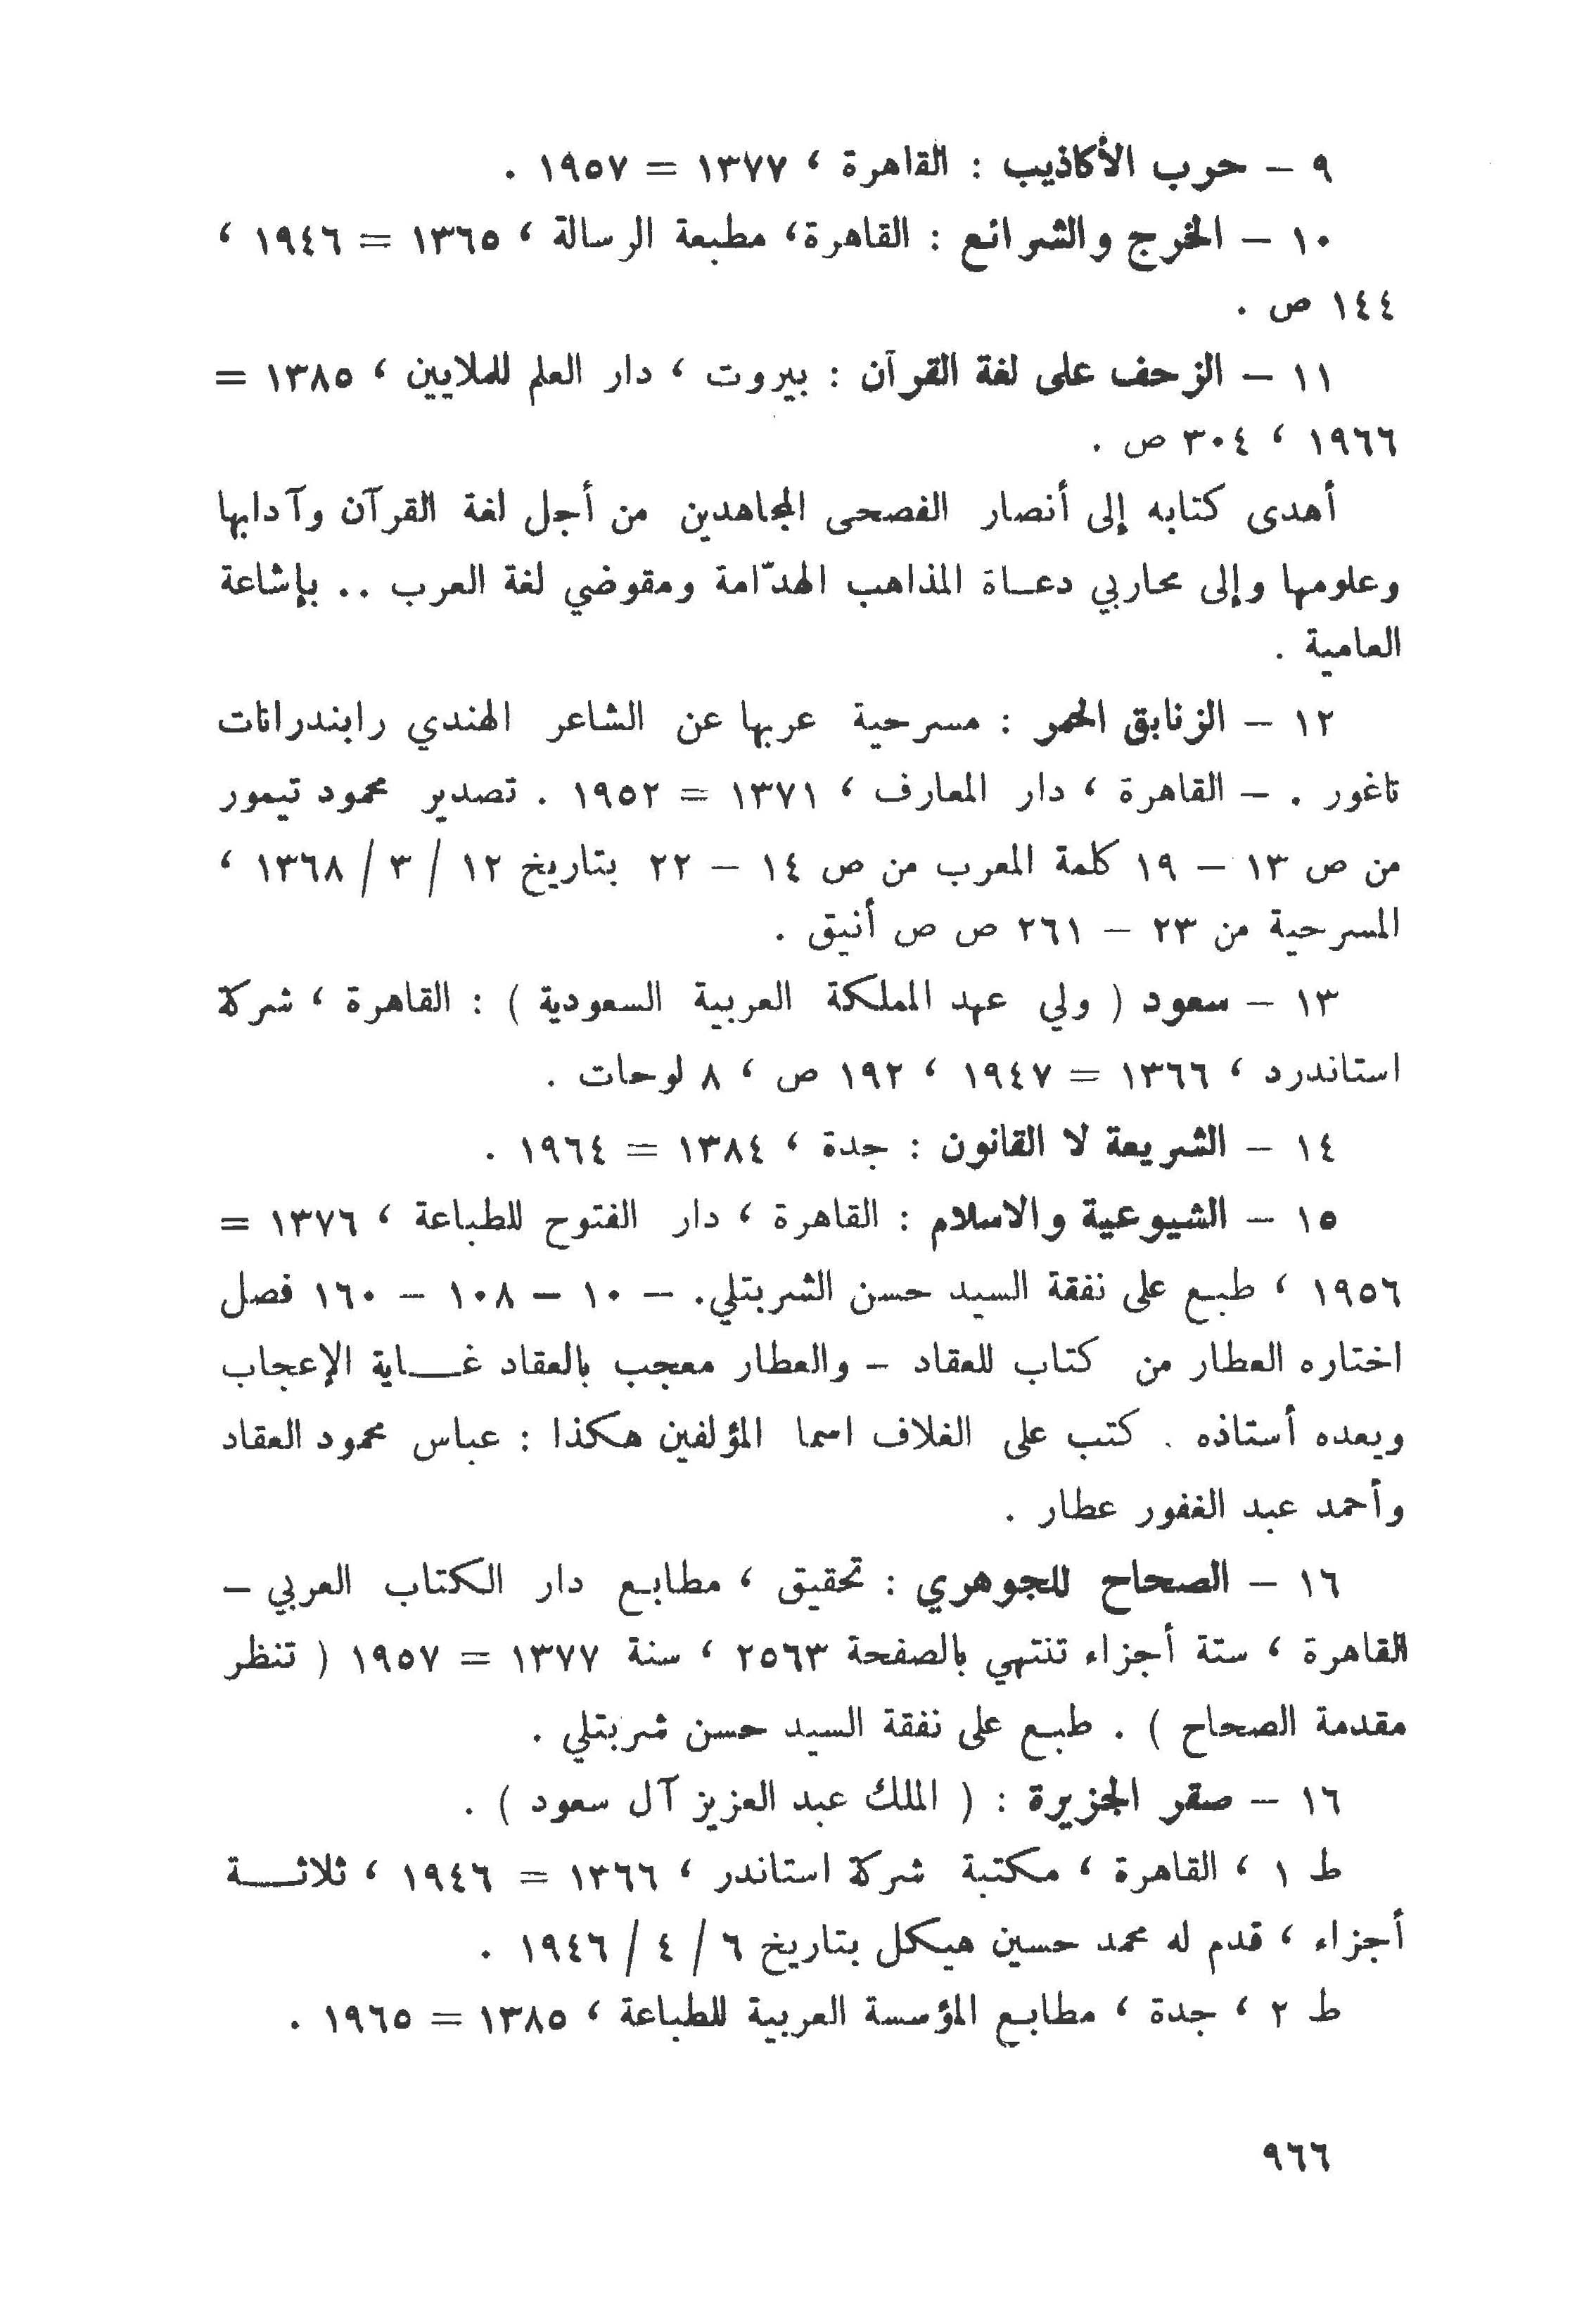 ٩ – حرب الأكاذيب : القاهرة ، ١٣٧٧ = ١٩٥٧ .
١٠ – الخرج والشرائع : القاهرة، مطبعة الرسالة ، ١٣٦٥ = ١٩٤٦ ،
١٤٤ ص .
١١ – الزحف على لغة القرآن : بيروت ، دار العلم للملايين ، ١٣٨٥ =
١٩٦٦ ، ٣٠٤ ص .
أهدى كتابه إلى أنصار الفصحى المجاهدين من أجل لغة القرآن وآدابها
وعلومها وإلى محاربي دعاة المذاهب الهدّامة ومقوضي لغة العرب .. بإشاعة
العامية .
١٢ – الزنابق الحمر : مسرحية عربها عن الشاعر الهندي رابندرانات
تاغور . – القاهرة ، دار المعارف ، ١٣٧١ = ١٩٥٢ . تصدير محمود تيمور
من ص ١٣ – ١٩ كلمة المعرب من ص ١٤ – ٢٢ بتاريخ ١٢ / ٣ / ١٣٦٨ ،
المسرحية من ٢٣ – ٢٦١ ص ص أنيق .
١٣ – سعود ( ولي عهد المملكة العربية السعودية ) : القاهرة ، شركة
استاندرد ، ١٣٦٦ = ١٩٤٧ ، ١٩٢ ص ، ٨ لوحات .
١٤ – الشريعة لا القانون : جدة ، ١٣٨٤ = ١٩٦٤ .
١٥ – الشيوعية والاسلام : القاهرة ، دار الفتوح للطباعة ، ١٣٧٦ =
١٩٥٦ ، طبع على نفقة السيد حسن الشربتلي. – ١٠ – ١٠٨ – ١٦٠ فصل
اختاره العطار من كتاب للعقاد – والعطار معجب بالعقاد غاية الإعجاب
ويعده أستاذه . كتب على الغلاف اسما المؤلفين هكذا : عباس محمود العقاد
وأحمد عبد الغفور عطار .
١٦ – الصحاح للجوهري : تحقيق ، مطابع دار الكتاب العربي –
القاهرة ، ستة أجزاء تنتهي بالصفحة ٢٥٦٣ ، سنة ١٣٧٧ = ١٩٥٧ ( تنظر
مقدمة الصحاح ) . طبع على نفقة السيد حسن شربتلي .
١٦ – صقر الجزيرة : ( الملك عبد العزيز آل سعود ) .
ط ١ ، القاهرة ، مكتبة شركة استاندر ، ١٣٦٦ = ١٩٤٦ ، ثلاثة
أجزاء ، قدم له محمد حسين هيكل بتاريخ ٦ / ٤ / ١٩٤٦ .
ط ٢ ، جدة ، مطابع المؤسسة العربية للطباعة ، ١٣٨٥ = ١٩٦٥ .
٩٦٦